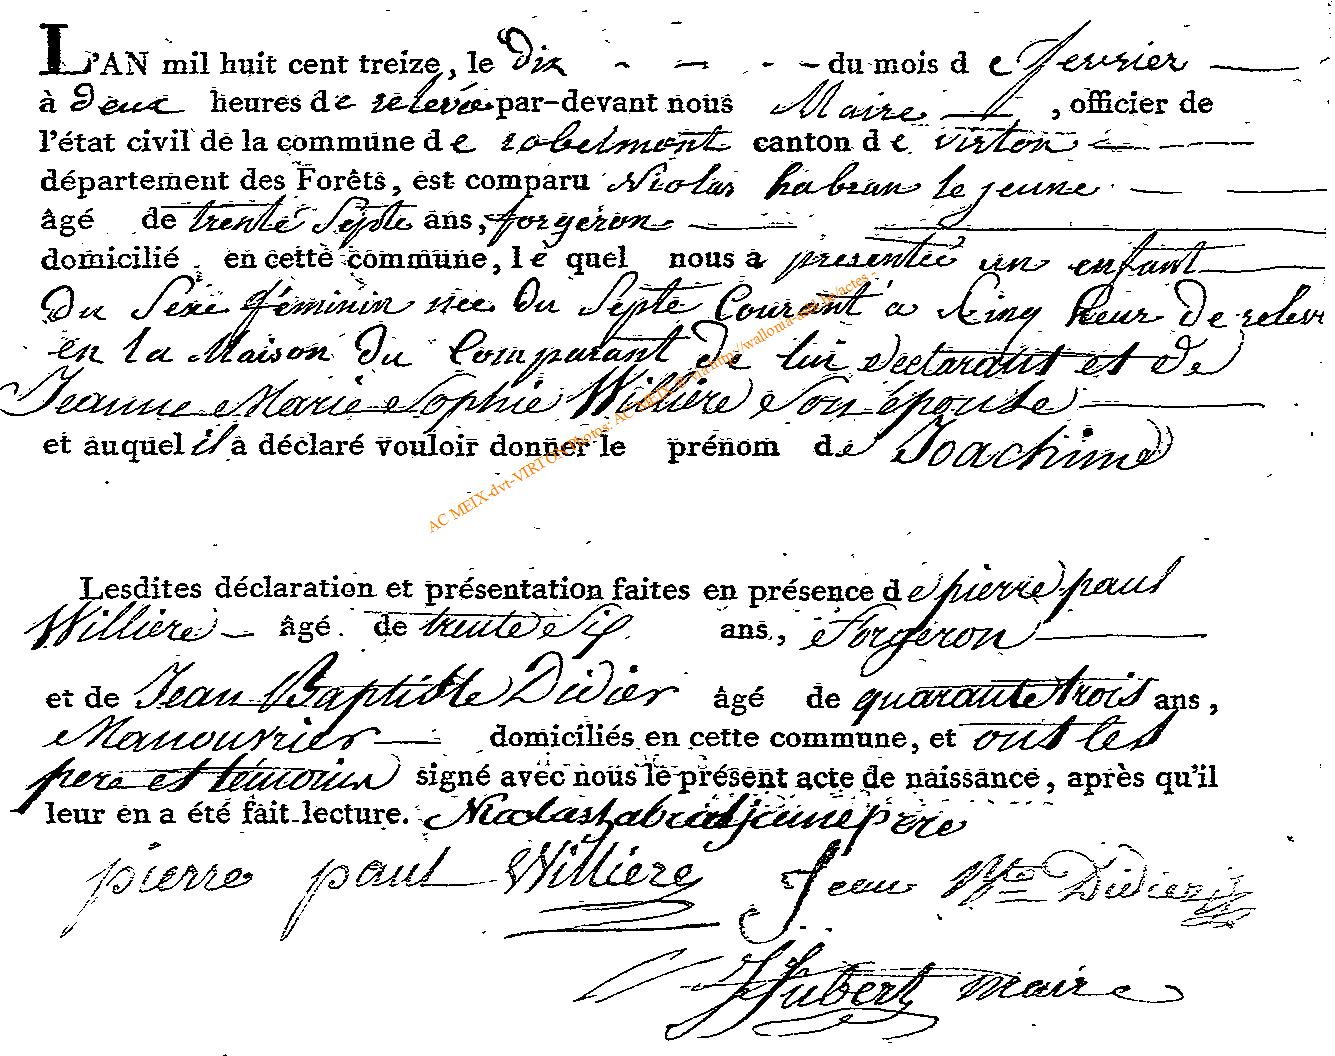 L'AN mil huit cent treize, le Dix - - - - du mois de fevrier
à Deux heures de relevée par-devant nous Maire, officier de
l'état civil de la commune de robelmont canton de virton
département des Forêts, est comparu Nicolas habran le jeune
âgé de trente Septe ans, forgeron
domicilié en cette commune, le quel nous a presentée un enfant
Du Sexe féminin nee du Septe Courant a Cinq heur De relev
en la Maison Du Comparant De lui Declarant et de
Jeanne Marie Sophie Willière Son épouse
et auquel il a déclaré vouloir donner le prénom de Joachime
AC MEIX-dvt-VIRTON
Lesdites déclaration et présentation faites en présence de pierre paul
Willière âgé de trente Six ans, Forgeron
et de Jean Baptiste Didier âgé de quarante trois ans,
Manouvrier domiciliés en cette commune, et ont les
pere et témoins signé avec nous le présent acte de naissance, après qu'il
leur en a été fait lecture. Nicolas habran jeune père
pierre paul Willière Jean Bte Didier
Hubert maire